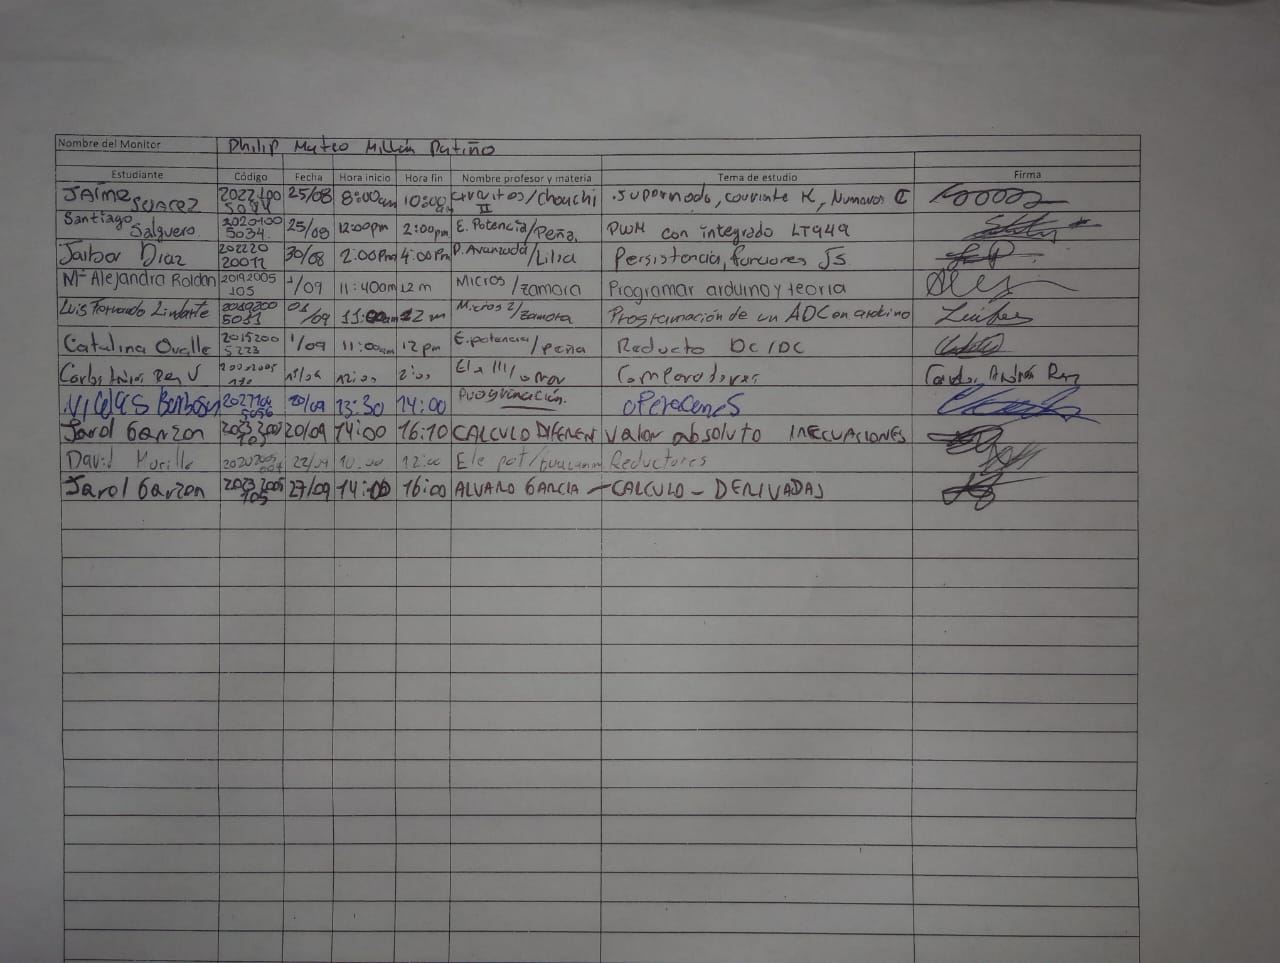 Nombre del Monitor Philip Mateo Millán Patiño
Estudiante Código Fecha Hora inicio Hora fin Nombre profesor y materia Tema de estudio Firma
Jaime Suarez 2022100 25/08 8:00am 10:00am Circuitos/Chouchi II .Supernodo, corriente K, Numeros C
Santiago Salguero 2020100 5034 25/08 12:00pm 2:00pm E. Potencia/Peña. PWM con integrado LT949
Jaibor Diaz 202220 20011 30/08 2:00Pm 4:00Pm P. Avanzada/Lilia Persistencia, funciones JS.
Mª Alejandra Roldan 20192005 105 1/09 11:40am 12 m Micros/zamora Programar arduino y teoria
Luis Fernando Linharte 2019200 5031 01/09 11:00am 12 m Micros 2/zamora Programación de un ADC en arduino
Catalina Ovalle 2015200 5223 1/09 11:00am 12 pm E.potencia/Peña Reducto DC/DC
Carlos Andrés Rey V Ele III/ Comparadores Carlos Andrés Rey
Nicolas Barbosa 20/09 13:30 14:00 Programación. operaciones
Jarol Garzon 20232005 105 20/09 14:00 16:10 CALCULO DIFEREN Valor absoluto INECUACIONES
David Murillo 22/09 10:00 12:00 Ele pot/ Reductores
Jarol Garzon 20232005 105 27/09 14:00 16:00 ALVARO GARCIA - CALCULO - DERIVADAS